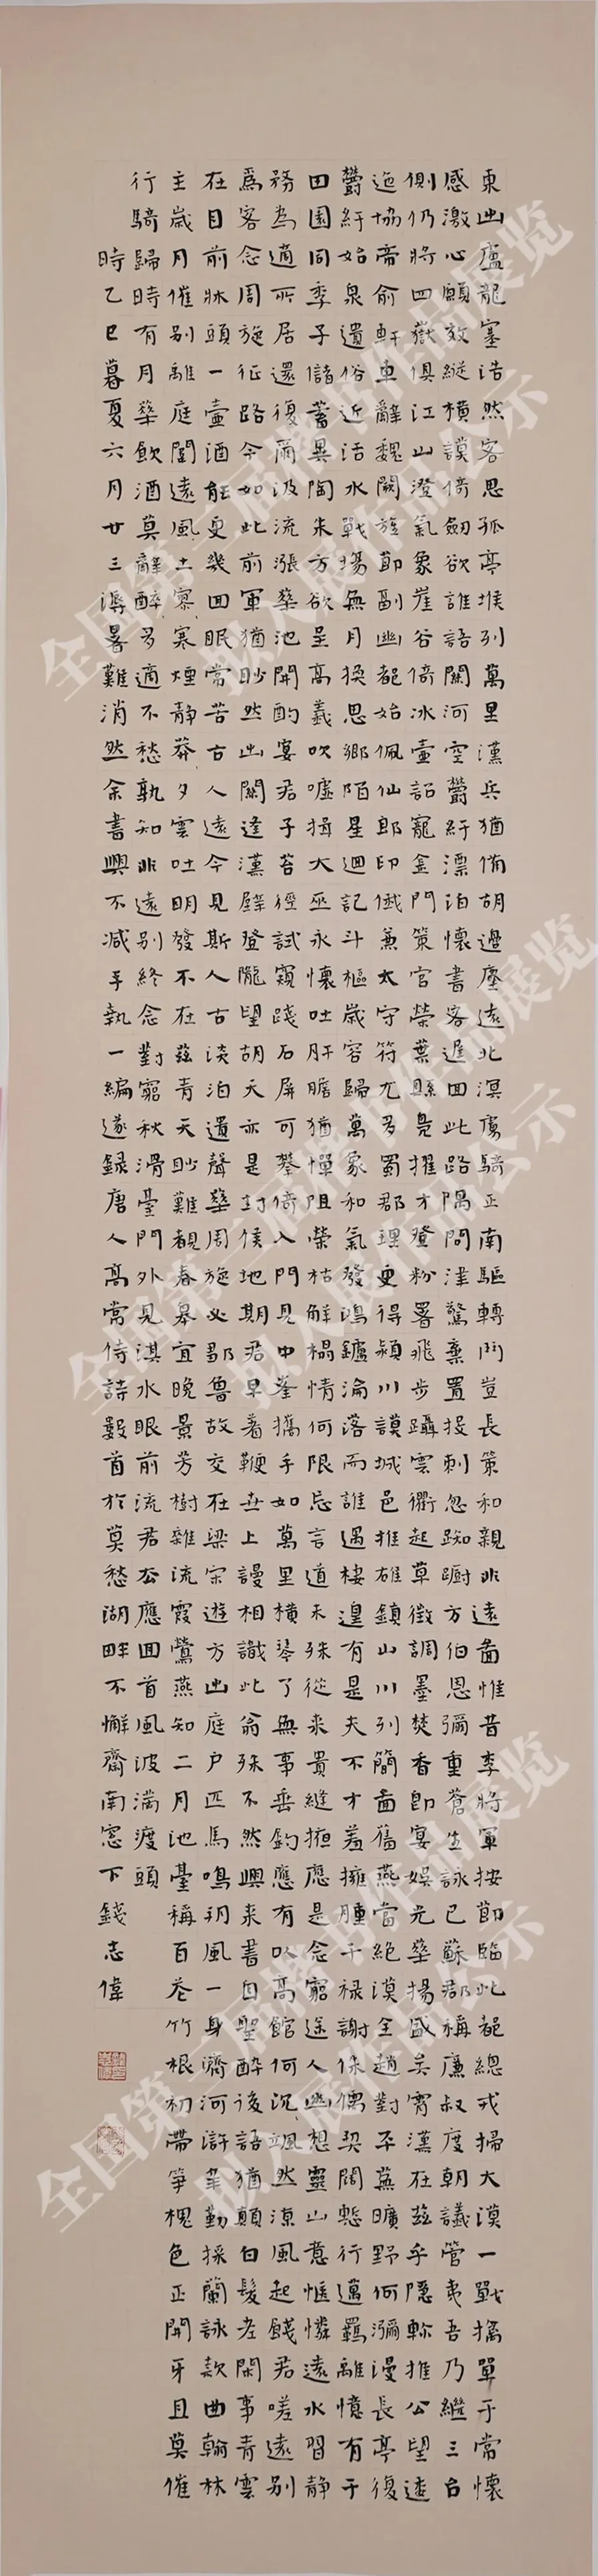 東出盧龍塞浩然客思孤亭堠列萬里漢兵猶備胡邊塵遠北溟虜騎正南驅轉鬥豈長策和親非遠啚惟昔李將軍按節臨此都總戎掃大漠一戰擒單于常懷
感激心願效縱橫謨倚劒欲誰語關河空鬱紆漂泊懷書客遲回此路隅問津驚棄置投刺忽踟蹰方伯恩彌重蒼生詠已蘇郡稱廉叔度朝議管夷吾乃繼三台
側仍將四嶽俱江山澄氣象崖谷倚冰壺詔寵金門策官榮葉縣鳧擢才登粉署飛步躡雲衢起草徵調墨焚香即宴娛光華揚盛矣霄漢在茲乎隱軫推公望逶
迤協帝俞軒車辭魏闕旌節副幽都始佩仙郎印俄兼太守符尤多蜀郡理更得潁川謨城邑推雄鎮山川列簡啚舊燕當絕漠全趙對平蕪曠野何瀰漫長亭復
鬱紆始泉遺俗近活水戰場無月換思鄉陌星迴記斗樞歲容歸萬象和氣發鴻鑪淪落而誰遇棲遑有是夫不才羞擁腫干祿謝侏儒契闊慙行邁羈離憶有于
田園同季子儲蓄異陶朱方欲呈高義吹噓揖大巫永懷吐肝膽猶憚阻榮枯解榻情何限忘言道未殊從來貴縫掖應是念窮途人幽想靈山意愜憐遠水習静
務為適所居還復爾汲流漲華池開酌宴君子苔徑試窺踐石屏可攀倚入門見中峯攜手如萬里橫琴了無事垂釣應有以高館何沉々颯然涼風起餞君嗟遠別
為客念周旋征路今如此前軍猶眇然出關逢漢壁登隴望胡天亦是封侯地期君早着鞭世上謾相識此翁殊不然興來書自聖醉後語猶顛白髮老閑事青雲
在目前牀頭一壺酒能更幾回眠常苦古人遠今見斯人古淡泊遺聲華周旋必鄒魯故交在梁宋遊方出庭户匹馬鳴朔風一身濟河滸辛勤採蘭詠款曲翰林
主歲月催別離庭闈遠風土寥々寒煙静莽々夕雲吐明發不在茲青天眇難覩春皋宜晚景芳樹雜流霞鶯燕知二月池臺稱百花竹根初帶笋槐色正開牙且莫催
行騎歸時有月華飲酒莫辭醉々多適不愁孰知非遠別終念對窮秋滑臺門外見淇水眼前流君去應回首風波滿渡頭
時乙巳暮夏六月廿三溽暑難消然余書興不减手執一編遂録唐人高常侍詩數首於莫愁湖畔不懈齋南窓下錢志偉